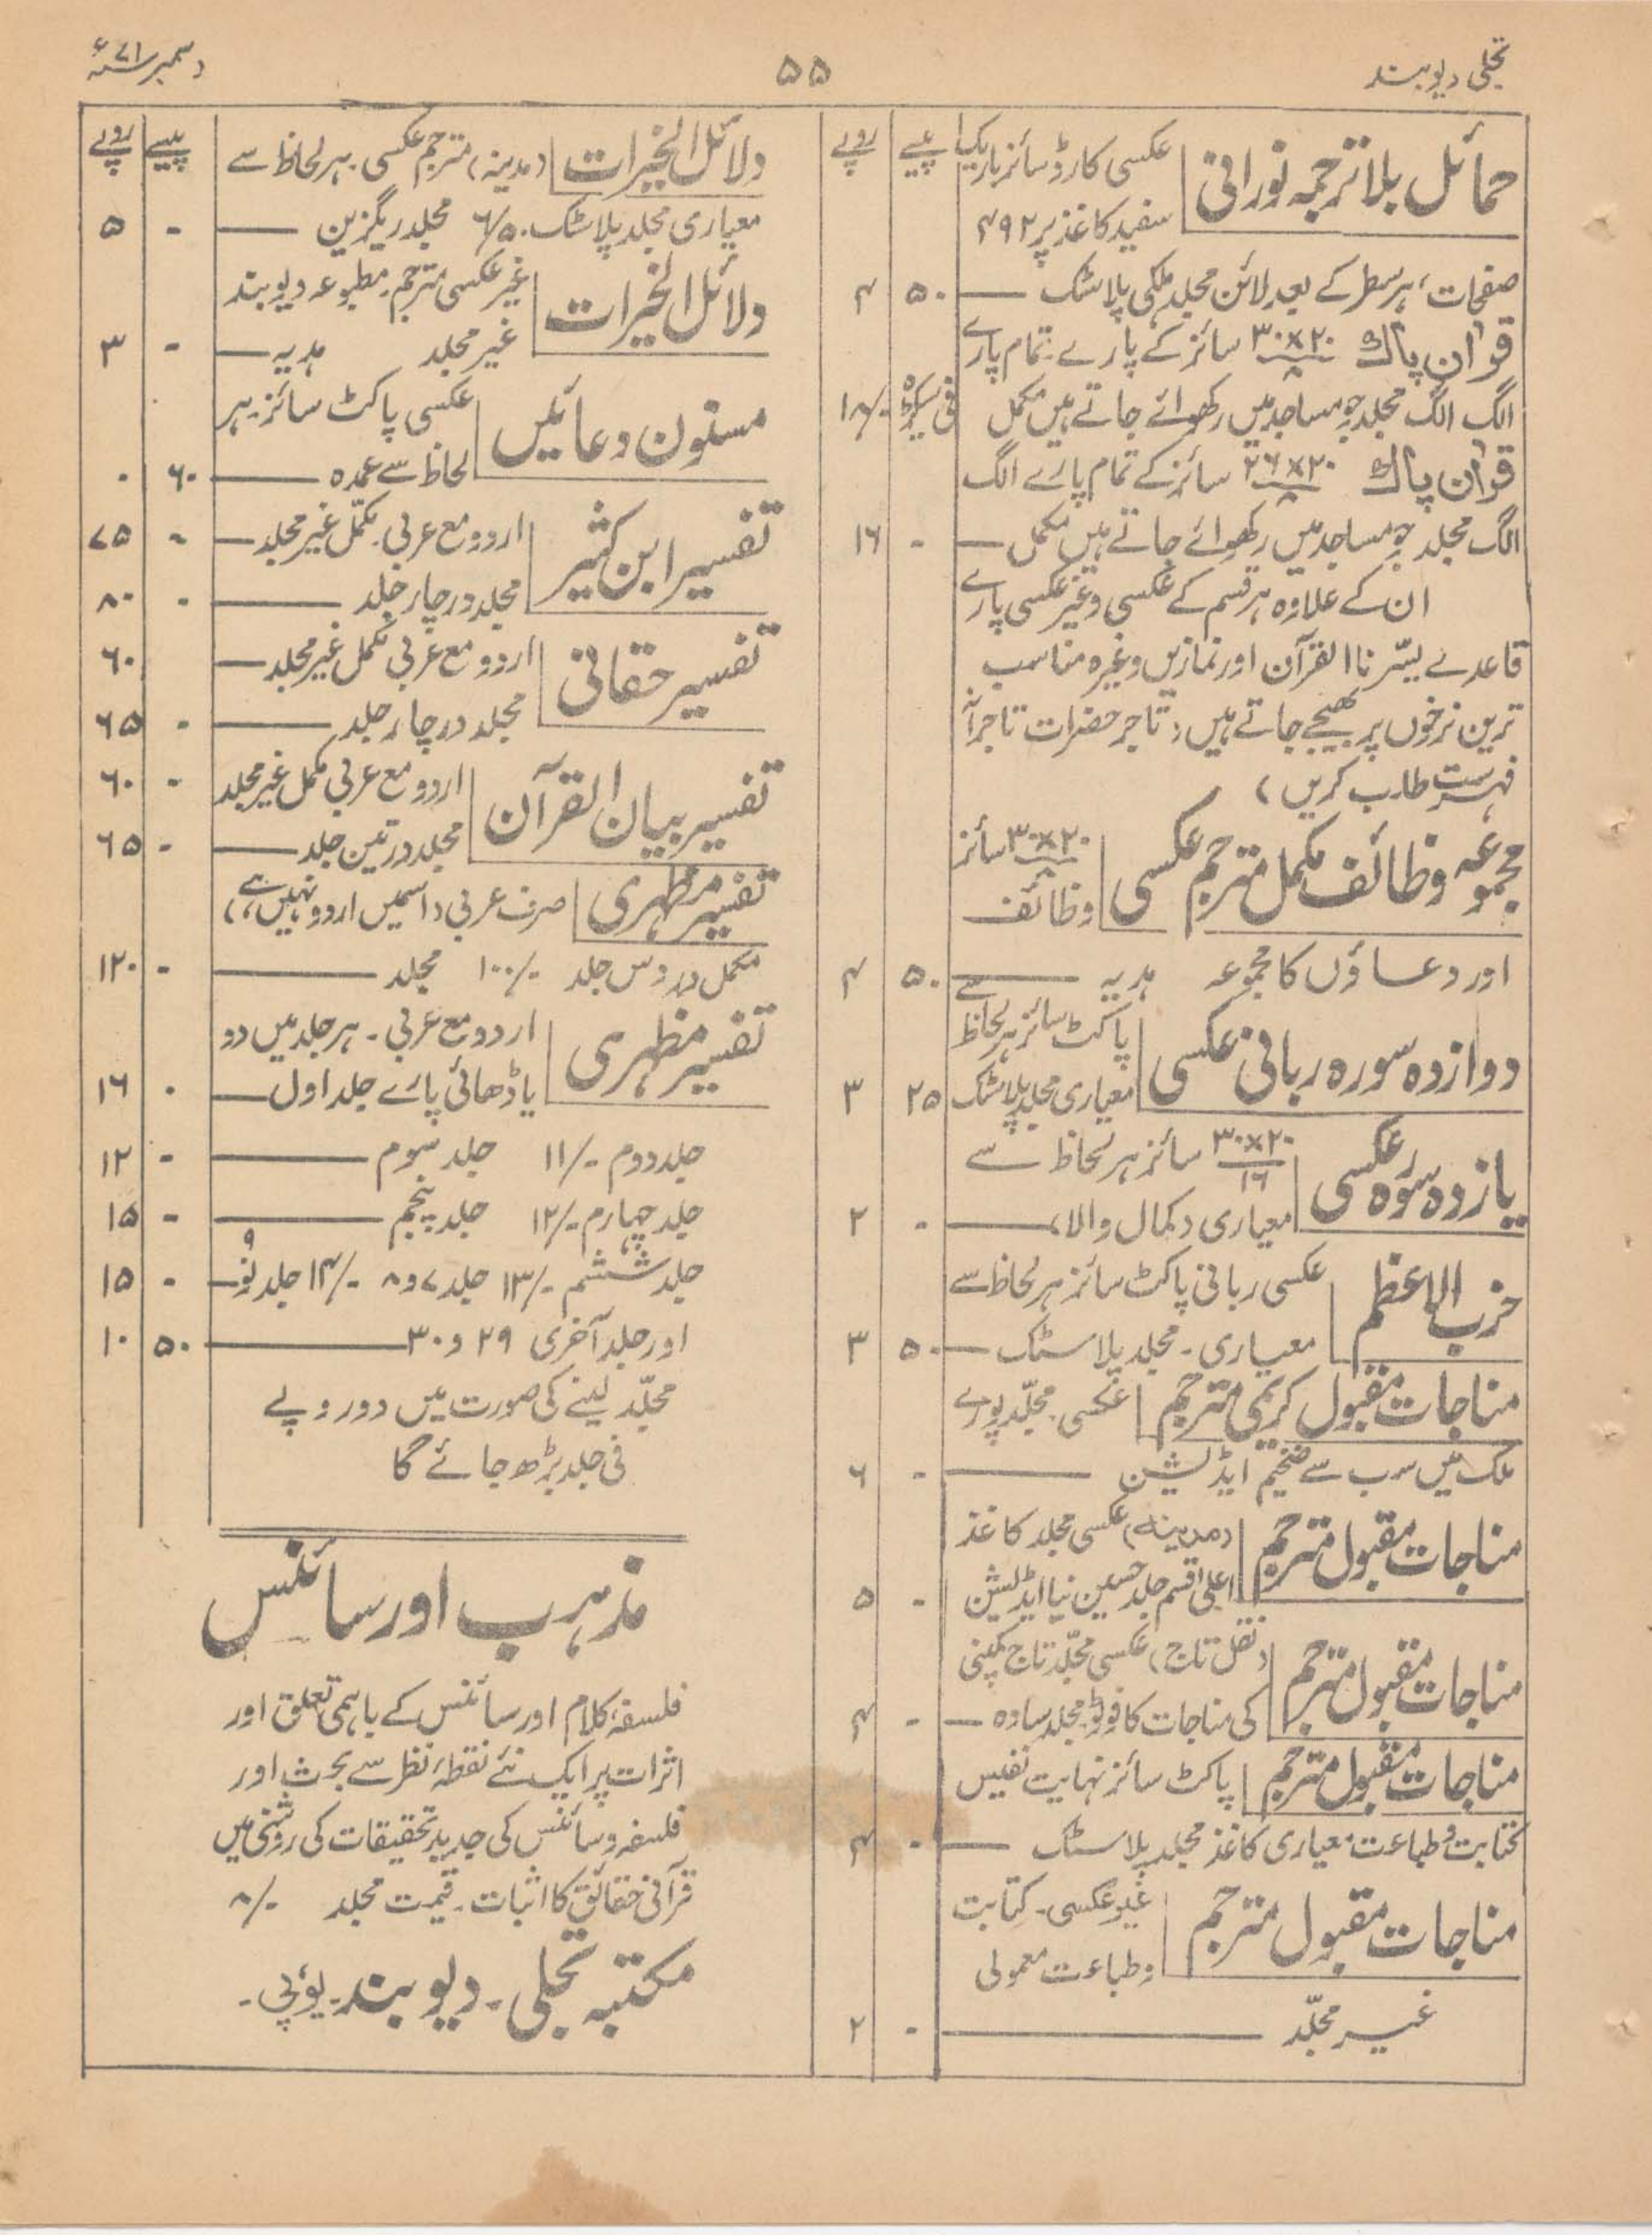 تجلی دیوبند
۵۵
دسمبر ۷۱ء
پیسے روپے
حمائل بلا ترجمہ نورانی عکسی کارڈ سائز باریک
سفید کاغذ پر ۴۹۲
صفحات، ہر سطر کے بعد لائن مجلد ملکی پلاسٹک — ۵۰ ۴
قرآن پاک ۲۰×۳۰/۸ سائز کے پارے۔ تمام پارے
الگ الگ مجلد جو مساجد میں رکھوائے جاتے ہیں مکمل فی سیکڑہ ۱۸/-
قرآن پاک ۲۰×۲۶/۸ سائز کے تمام پارے الگ
الگ مجلد جو مساجد میں رکھوائے جاتے ہیں مکمل — - ۱۶
ان کے علاوہ ہر قسم کے عکسی و غیر عکسی پارے
قاعدے یسّرنا القرآن اور نمازیں وغیرہ مناسب
ترین نرخوں پر بھیجے جاتے ہیں (تاجر حضرات تاجرانہ
فہرست طلب کریں)
مجموعہ وظائف مکمل مترجم عکسی ۲۰×۳۰/۸ سائز
وظائف
اور دعاؤں کا مجموعہ ہدیہ — ۵۰ ۴
دوازدہ سورہ ربانی عکسی پاکٹ سائز ہر لحاظ سے
معیاری مجلد پلاسٹک ۲۵ ۳
یازدہ سورہ عکسی ۲۰×۳۰/۱۶ سائز ہر لحاظ سے
معیاری (کمال والا) — - ۲
حزب الاعظم عکسی ربانی پاکٹ سائز ہر لحاظ سے
معیاری۔ مجلد پلاسٹک — ۵۰ ۳
مناجات مقبول کریمی مترجم عکسی۔ مجلّد پورے
ملک میں سب سے ضخیم ایڈیشن — - ۶
مناجات مقبول مترجم (مدینہ) عکسی مجلد کاغذ
اعلیٰ قسم جلد حسین نیا ایڈیشن - ۵
مناجات مقبول مترجم (نقل تاج) عکسی مجلّد تاج کمپنی
کی مناجات کا فوٹو۔ مجلد سادہ — - ۴
مناجات مقبول مترجم پاکٹ سائز نہایت نفیس
کتابت و طباعت معیاری کاغذ مجلد پلاسٹک — - ۴
مناجات مقبول مترجم غیر عکسی۔ کتابت
و طباعت معمولی
غیر مجلّد — - ۲
پیسے روپے
دلائل الخیرات (مدینہ) مترجم عکسی۔ ہر لحاظ سے
معیاری مجلد پلاسٹک ۶/۵۰ مجلد ریگزین — - ۵
دلائل الخیرات غیر عکسی مترجم۔ مطبوعہ دیوبند
غیر مجلد ہدیہ — - ۳
مسنون دعائیں عکسی پاکٹ سائز۔ ہر
لحاظ سے عمدہ — ۶۰ ۰
تفسیر ابن کثیر اردو مع عربی۔ مکمّل غیر مجلد — - ۷۵
مجلد در چار جلد — - ۸۰
تفسیر حقانی اردو مع عربی مکمل غیر مجلد — ۶۰
مجلد در چار جلد — - ۶۵
تفسیر بیان القرآن اردو مع عربی مکمل غیر مجلد - ۶۰
مجلد در تین جلد — - ۶۵
تفسیر مظہری صرف عربی (اسمیں اردو نہیں ہے)
مکمل در دس جلد ۱۰۰/- مجلد — - ۱۲۰
تفسیر مظہری اردو مع عربی۔ ہر جلد میں دو
یا ڈھائی پارے جلد اول — ۰ ۱۶
جلد دوم ۱۱/- جلد سوم — - ۱۲
جلد چہارم ۱۲/- جلد پنجم — - ۱۵
جلد ششم ۱۳/- جلد ۷ و ۸ ۱۴/- جلد نو ۹ — - ۱۵
اور جلد آخری ۲۹ و ۳۰ — ۵۰ ۱۰
مجلّد لینے کی صورت میں دو روپے
فی جلد بڑھ جائے گا
مذہب اور سائنس
فلسفۂ کلام اور سائنس کے باہمی تعلق اور
اثرات پر ایک نئے نقطۂ نظر سے بحث اور
فلسفہ و سائنس کی جدید تحقیقات کی روشنی میں
قرآنی حقائق کا اثبات۔ قیمت مجلد ۸/-
مکتبہ تجلی۔ دیوبند۔ یو پی۔